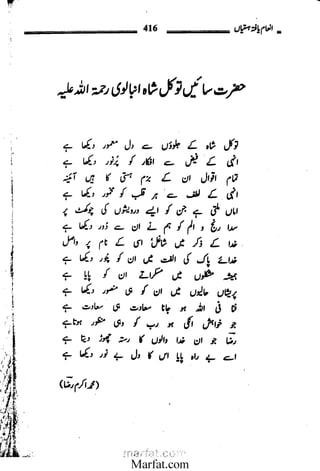 انعام یافتہ ہستیاں
416
حضرت سائیں توکل شاہ انبالوی رحمۃ اللہ علیہ
توکل شاہ کے جلوؤں سے دل معمور دیکھا ہے
انہی کے فیض سے افکار کو پُرنور دیکھا ہے
تمام اقوال ان کے بزم ہستی کا ہیں آئینہ
انہی کے لطف سے ہر قلب کو مخمور دیکھا ہے
اماں ملتی ہے جن کو ایسے درویشوں کی چوکھٹ پر
سدا رنج و الم کو ہم نے ان سے دور دیکھا ہے
خدا کے ذکر میں شاغل اسی کے نام پر واصل
خدائے پاک کی الفت میں ان کو چور دیکھا ہے
ہمیشہ مشکلوں میں مسکراتے ان کو پایا ہے
پریشاں حالیوں میں ان کو ہی دیکھا ہے
فنا فی اللہ ہو جانا سعادت ہی سعادت ہے
جو خواہش انکی ہو رب کو وہی منظور ہوتا ہے
رضا جو ان خدا والوں کا رستہ چھوڑ دیتا ہے
اسے بے راہ پایا اس کا دل بے نور دیکھا ہے
(محمد اکرم رضا)
marfat.com
Marfat.com